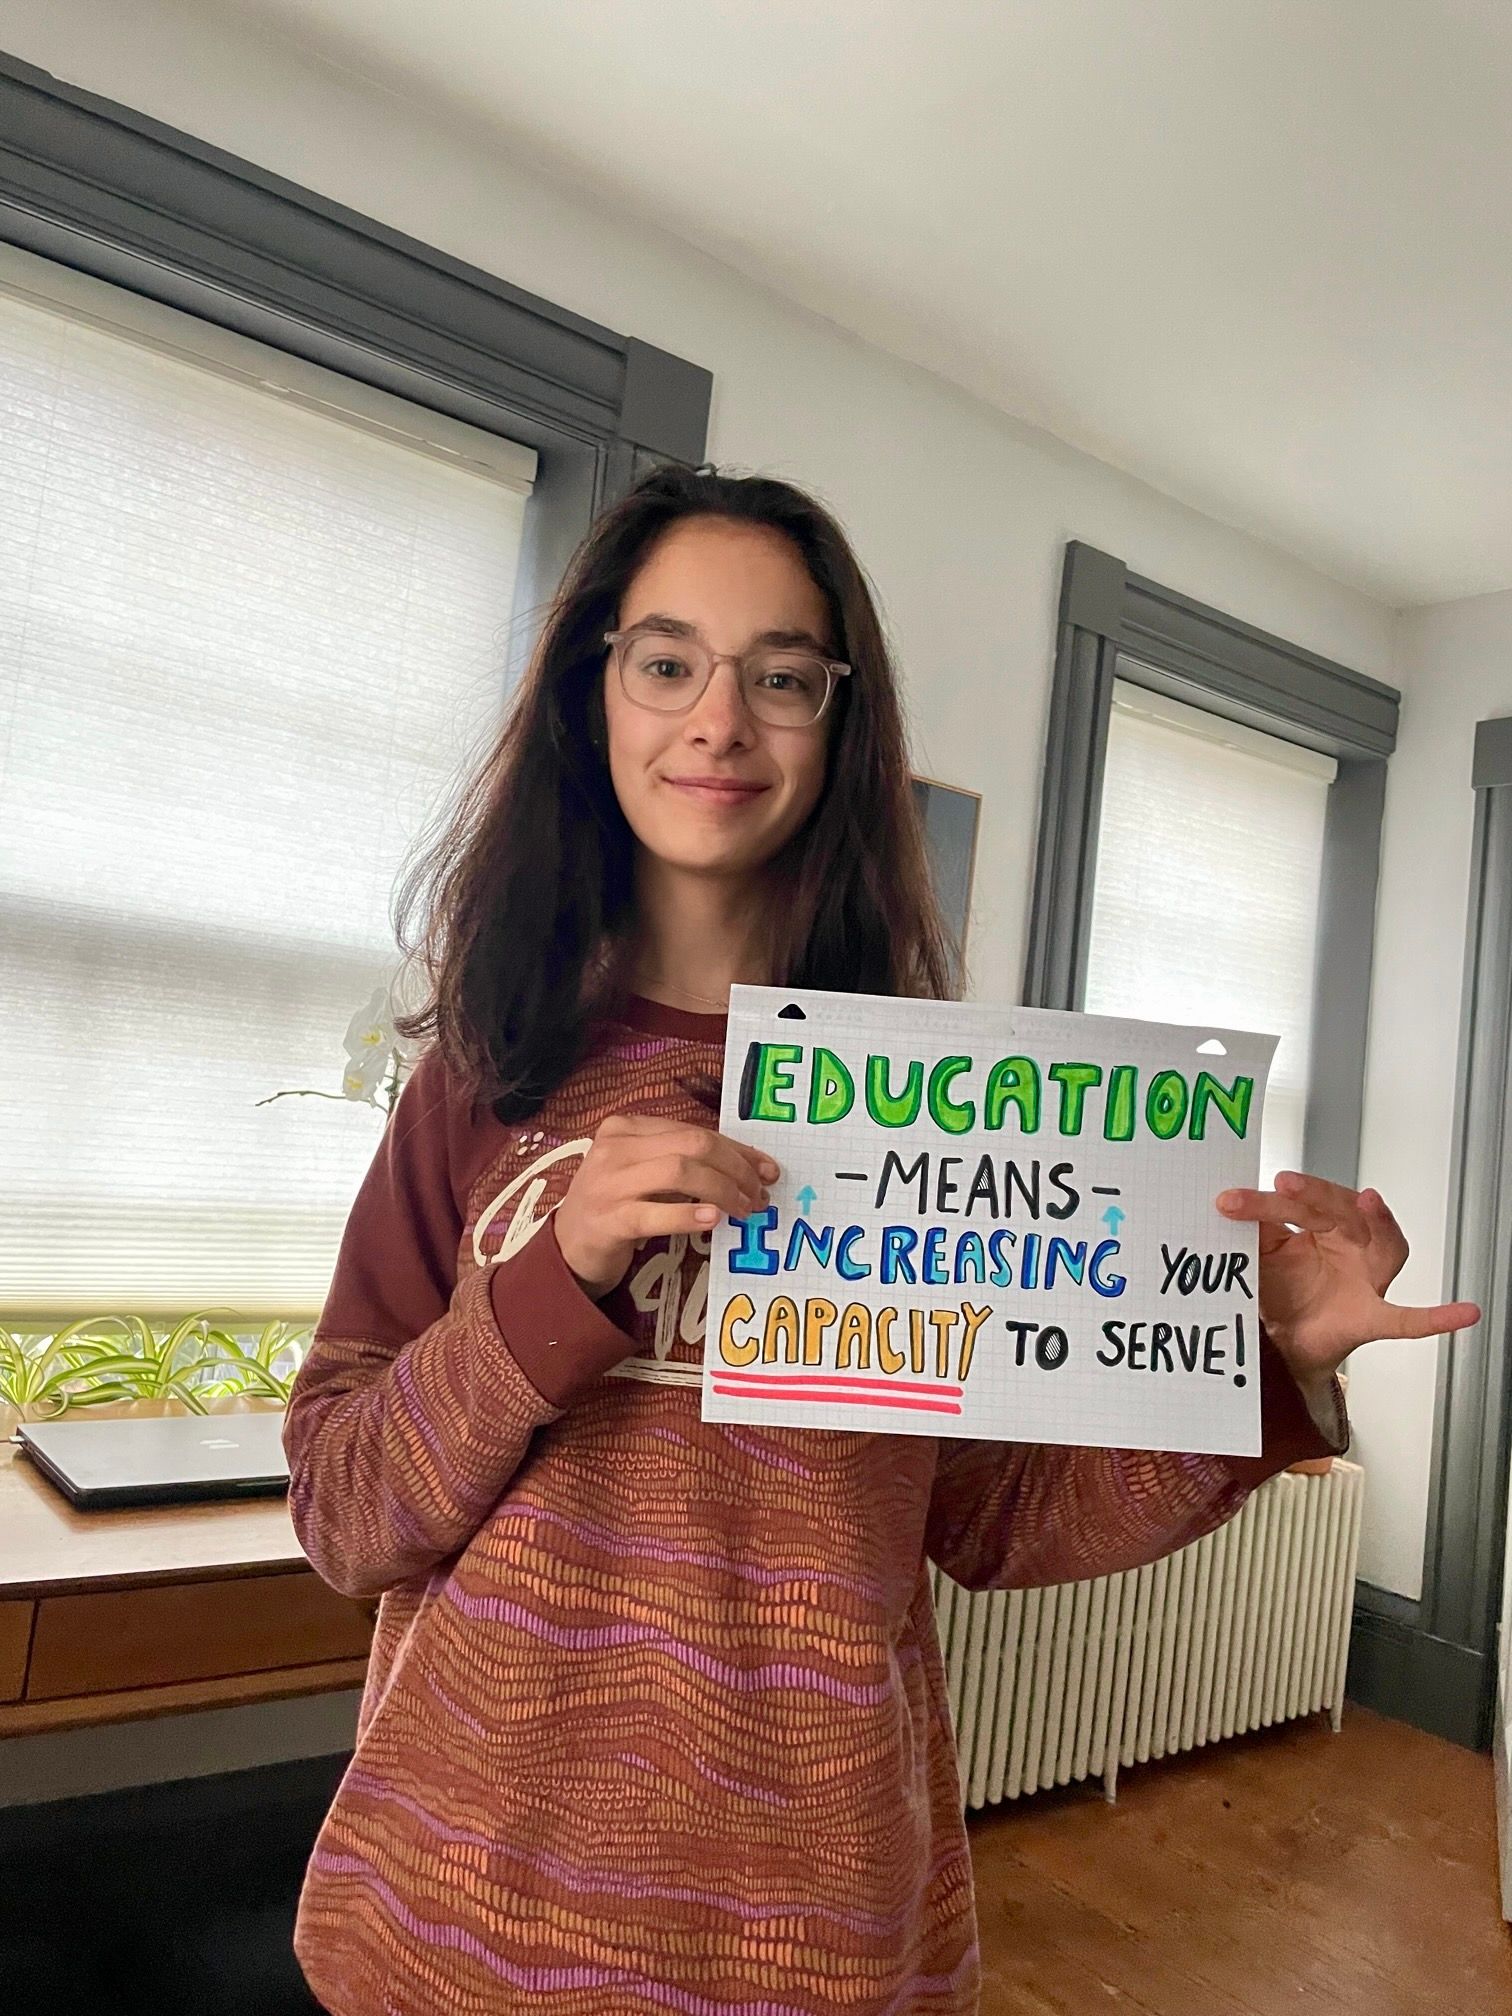 EDUCATION
-MEANS-
INCREASING YOUR
CAPACITY TO SERVE!